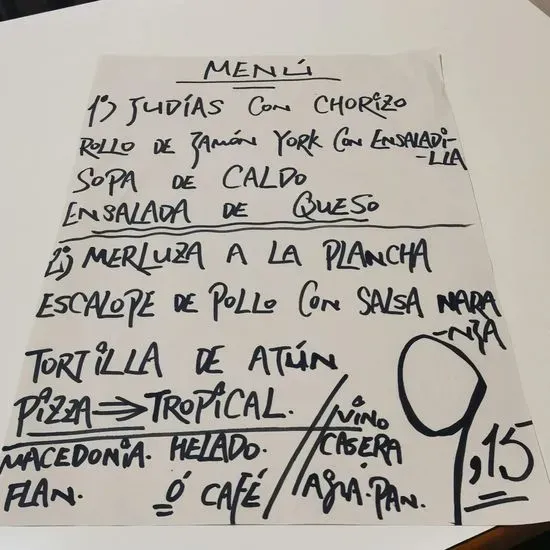 MENÚ
1º) JUDÍAS CON CHORIZO
ROLLO DE JAMÓN YORK CON ENSALADI-
-LLA
SOPA DE CALDO
ENSALADA DE QUESO
2º) MERLUZA A LA PLANCHA
ESCALOPE DE POLLO CON SALSA NARA
-NJA
TORTILLA DE ATÚN
PIZZA ⇒ TROPICAL.
MACEDONIA. HELADO.
FLAN. Ó CAFÉ
VINO
CASERA
AGUA. PAN.
9,15